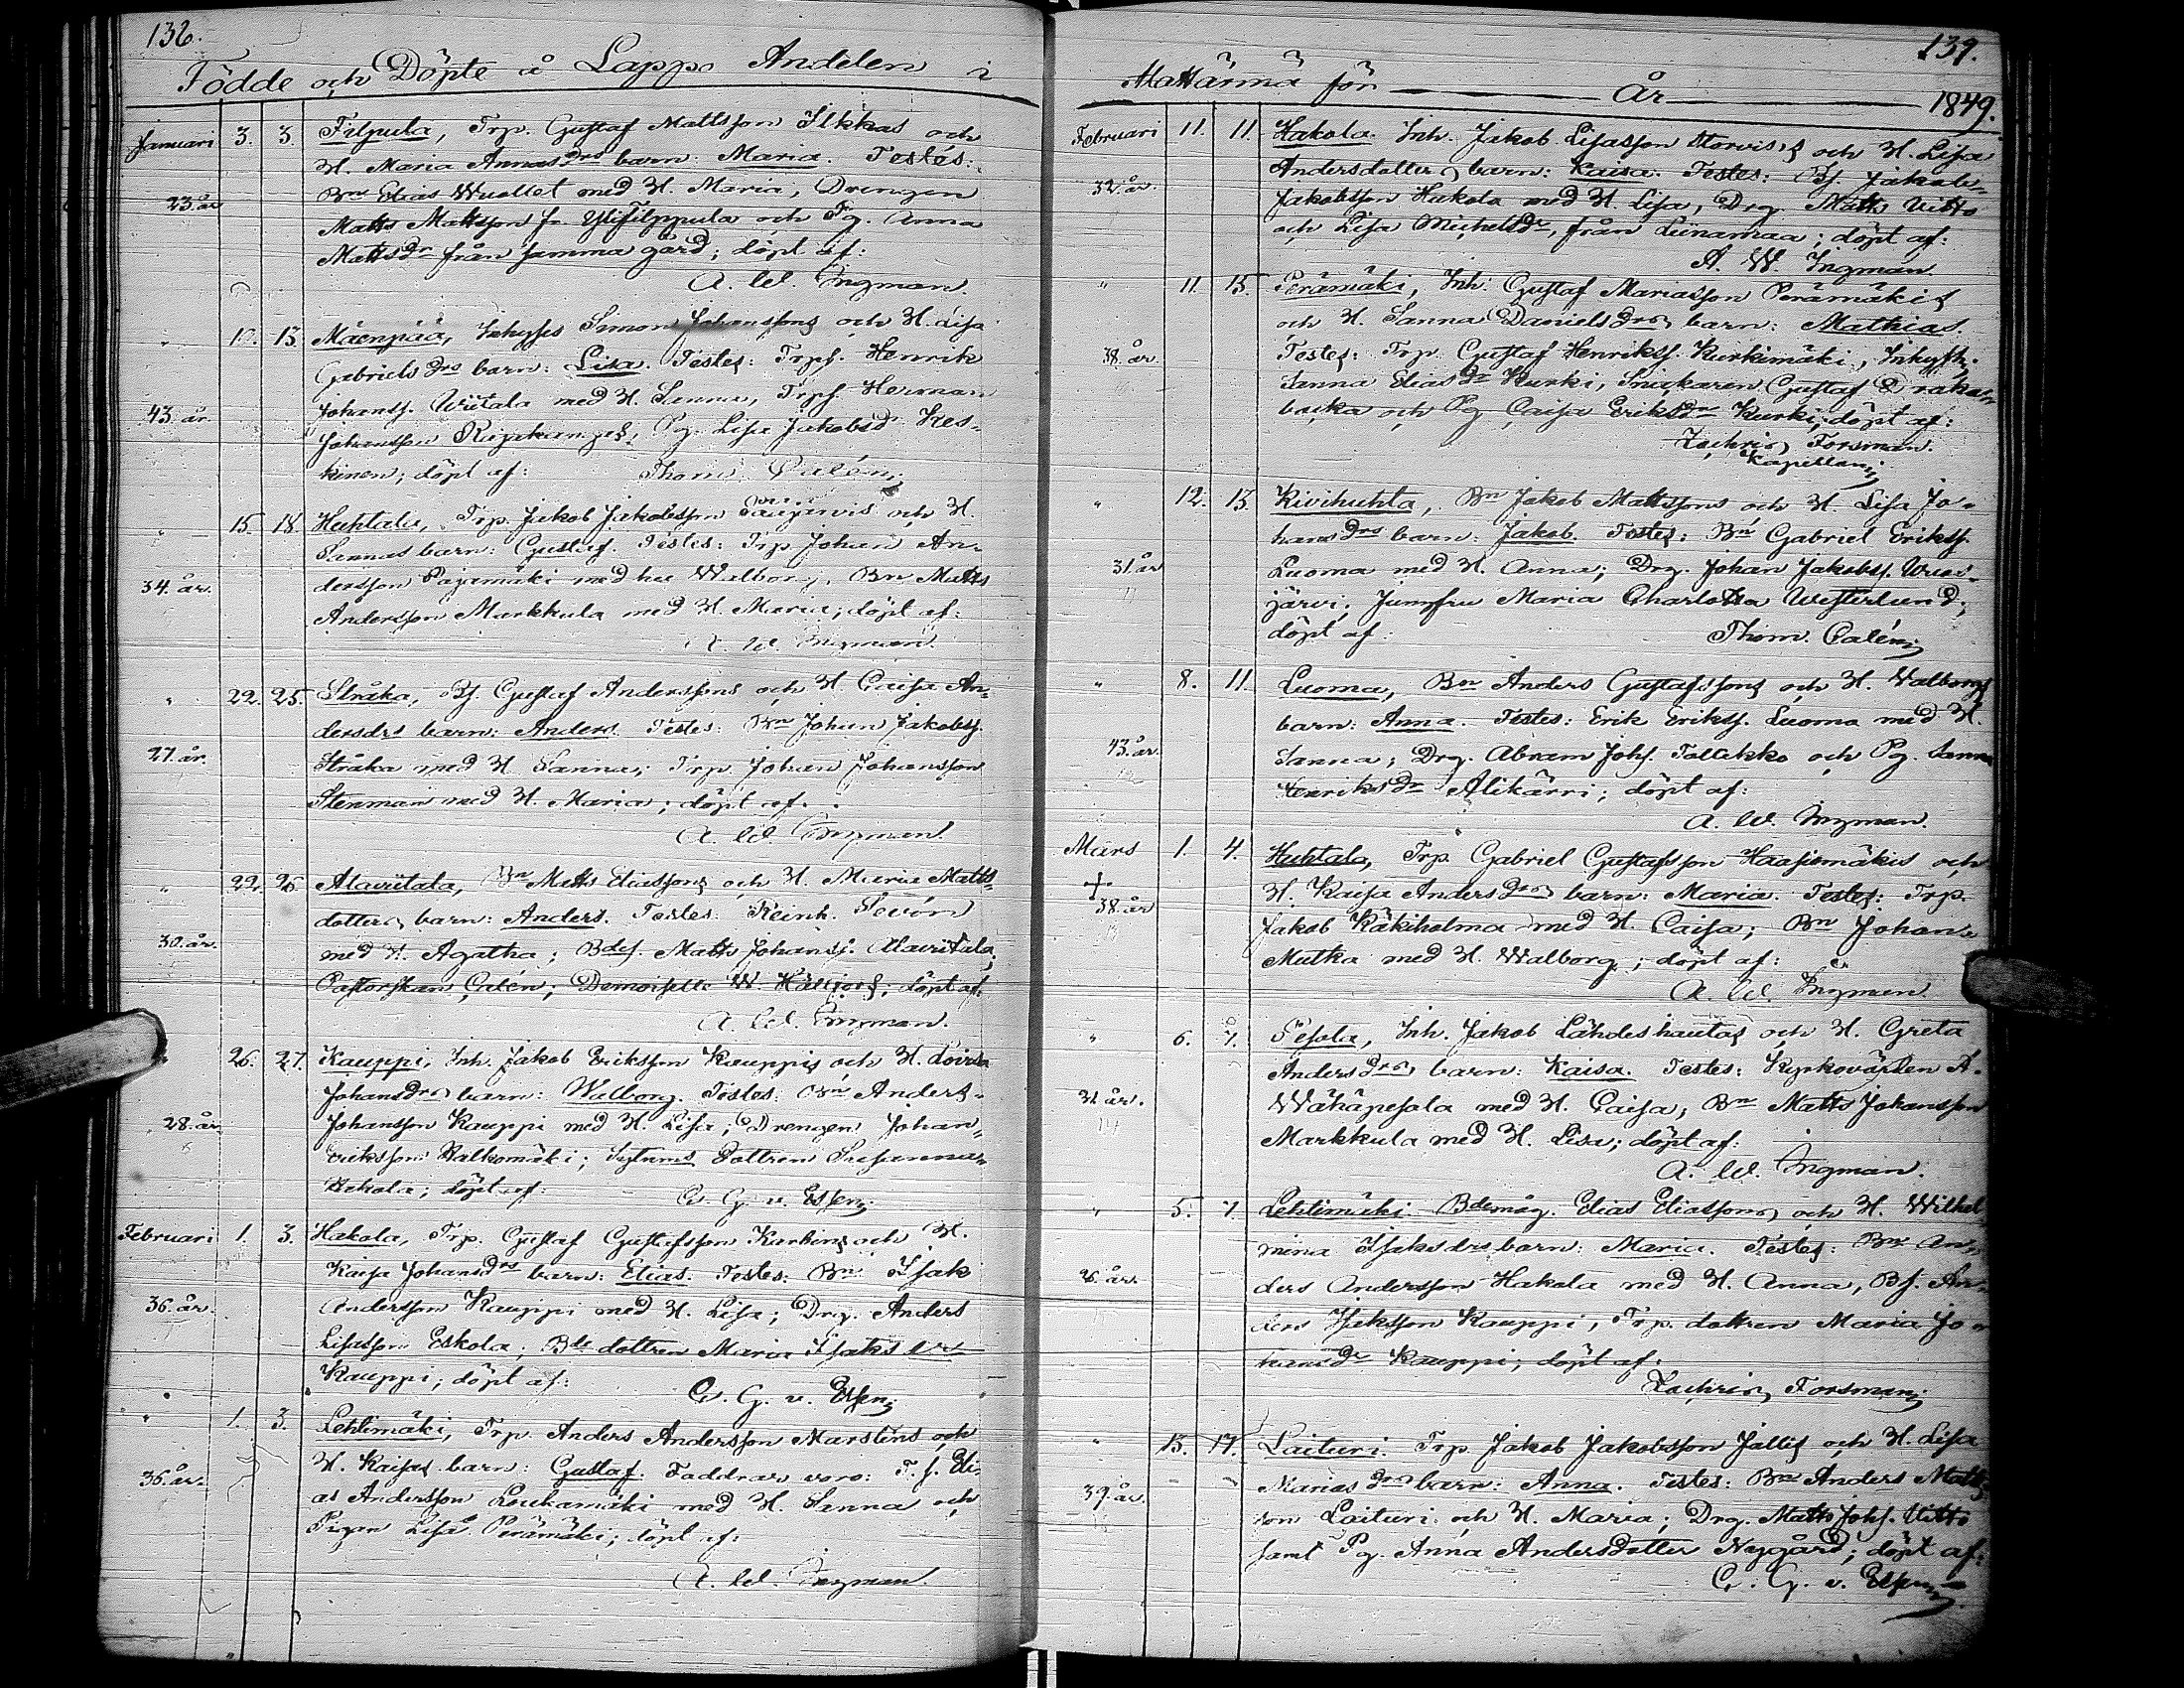 136.
Födde och Döpte å Lappo Andelen i
Januari 3. 3. Filpula, Trp. Gustaf Mattsson Ilkkas och
H. Maria Annas drs barn: Maria. Testes:
23. år Bn Elias Wuollet med H. Maria, Drengen
Matts Mattsson fr. Ylifilppula och Pg. Anna
Matts dr från samma gård; döpt af:
A. W. Ingman.
" 10. 13. Mäenpää, Inhyses Simon Johanssons och H. Lisa
Gabriels drs barn: Lisa. Testes: Trps. Henrik
43. år. Johanss. Wiitala med H. Sanna, Trps. Herman
Johansson Pg. Lisa Jakobsd. Kes-
kinen; döpt af: Thom. Calén.
" 15. 18. Huhtala, Trp. Jakob Jakobsson och H.
Sannas barn: Gustaf. Testes: Trp. Johan An-
34. år. dersson Pajamäki med hu Walborg, Bn Matts
Andersson Markkula med H. Maria; döpt af:
A. W. Ingman.
" 22. 25. Stråka, Bs. Gustaf Anderssons och H. Caisa An-
dersdrs barn: Anders. Testes: Bn Johan Jakobss.
27. år. Stråka med H. Sanna; Trp. Johan Johansson
Stenman med H. Maria; döpt af:
A. W. Ingman.
" 22. 26. Alawiitala, Bn Matts Eliassons och H. Maria Matts-
dotters barn: Anders. Testes: Reinh.
30. år. med H. Agatha; Bdes. Matts Johanss. Alawiitala,
Pastorskan Calén; Demoiselle W. Hällfors; döpt af:
A. W. Ingman.
26. 27. Kauppi, Inh. Jakob Eriksson Kauppis och H. Lovisa
Johans drs barn: Walborg. Testes: Bn Anders
28. år Johansson Kauppi med H. Lisa; Drengen Johan
Eriksson Valkomäki; Sytnings Dottren Susanna
Hakola; döpt af: C. G. v. Essen.
Februari 1. 3. Hakola, Trp. Gustaf Gustafsson Kurkins och H.
Kaisa Johans drs barn: Elias. Testes: Bn Isak
36. år. Andersson Kauppi med H. Lisa; Drg. Anders
Lisasson Eskola; Bde dottren Maria Isaks dr
Kauppi; döpt af: C. G. v. Essen.
" 1. 3. Lehtimäki, Trp. Anders Andersson Marstins och
H. Kaisas barn: Gustaf. Faddrar voro: T. s. Eli-
36. år. as Andersson Loukamäki med H. Sanna och
Pigan Lisa Perämäki; döpt af:
A. W. Ingman.
139.
Alahärmä för År 1849.
Februari 11. 11. Hakola. Inh. Jakob Lisasson Storvis's och H. Lisa
Andersdotters barn: Kaisa. Testes: Bs. Jakob
32. år. Jakobsson Hakola med H. Lisa, Drg. Matts Uitto
och Lisa Michels dr, från Liinamaa; döpt af:
A. W. Ingman.
" 11. 15. Perämäki, Inh. Gustaf Mariasson Perämäkis
och H. Sanna Daniels drs barn: Mathias.
38. år. Testes: Trp. Gustaf Henrikss. Kurkimäki, Inhysh.
Sanna Elias dr Kurki, Snickaren Gustaf Draka-
backa och Pg. Caisa Eriks dr Kurki; döpt af:
Zachris Forsman.
Kapellan.
" 12. 15. Kivihuhta, Bn Jakob Mattssons och H. Lisa Jo-
hans drs barn: Jakob. Testes: Bn Gabriel Erikss.
31. år Luoma med H. Anna; Drg. Johan Jakobss. Wuos-
järvi; Jumfru Maria Charlotta Westerlund;
döpt af: Thom. Calén.
" 8. 11. Luoma, Bn Anders Gustafssons och H. Walborgs
barn: Anna. Testes: Erik Erikss. Luoma med H.
43. år. Sanna; Drg. Abram Johs. Tollikko och Pg. Sanna
Henriks dr Alikärri; döpt af:
A. W. Ingman.
Mars 1. 4. Huhtala, Trp. Gabriel Gustafsson Haasiamäkis och
+ H. Kaisa Anders drs barn: Maria. Testes: Trp.
38. år Jakob Käkiholma med H. Caisa; Bn Johan
Matka med H. Walborg; döpt af:
A. W. Ingman.
" 6. 7. Pesola, Inh. Jakob Lähdeshautas och H. Greta
Anders drs barn: Kaisa. Testes: Kyrkovärden A.
32 år. Wähäpesola med H. Caisa; Bn Matts Johansson
Markkula med H. Lisa; döpt af:
A. W. Ingman.
" 5. 7. Lehtimäki. Bdemåg. Elias Eliassons och H. Wilhel
mina Isaksdrs barn: Maria. Testes: Bn An-
26. år. ders Andersson Hakola med H. Anna, Bs. An-
ders Isaksson Kauppi, Trp. dottren Maria Jo-
hans dr Kauppi; döpt af:
Zachris Forsman.
" 13. 17. Laituri. Trp. Jakob Jakobsson Jallis och H. Lisa
Marias drs barn: Anna. Testes: Bn Anders Matts-
39. år. son Laituri och H. Maria; Drg. Matts Johs. Uitto
samt Pg. Anna Andersdotter Nygård; döpt af:
C. G. v. Essen.